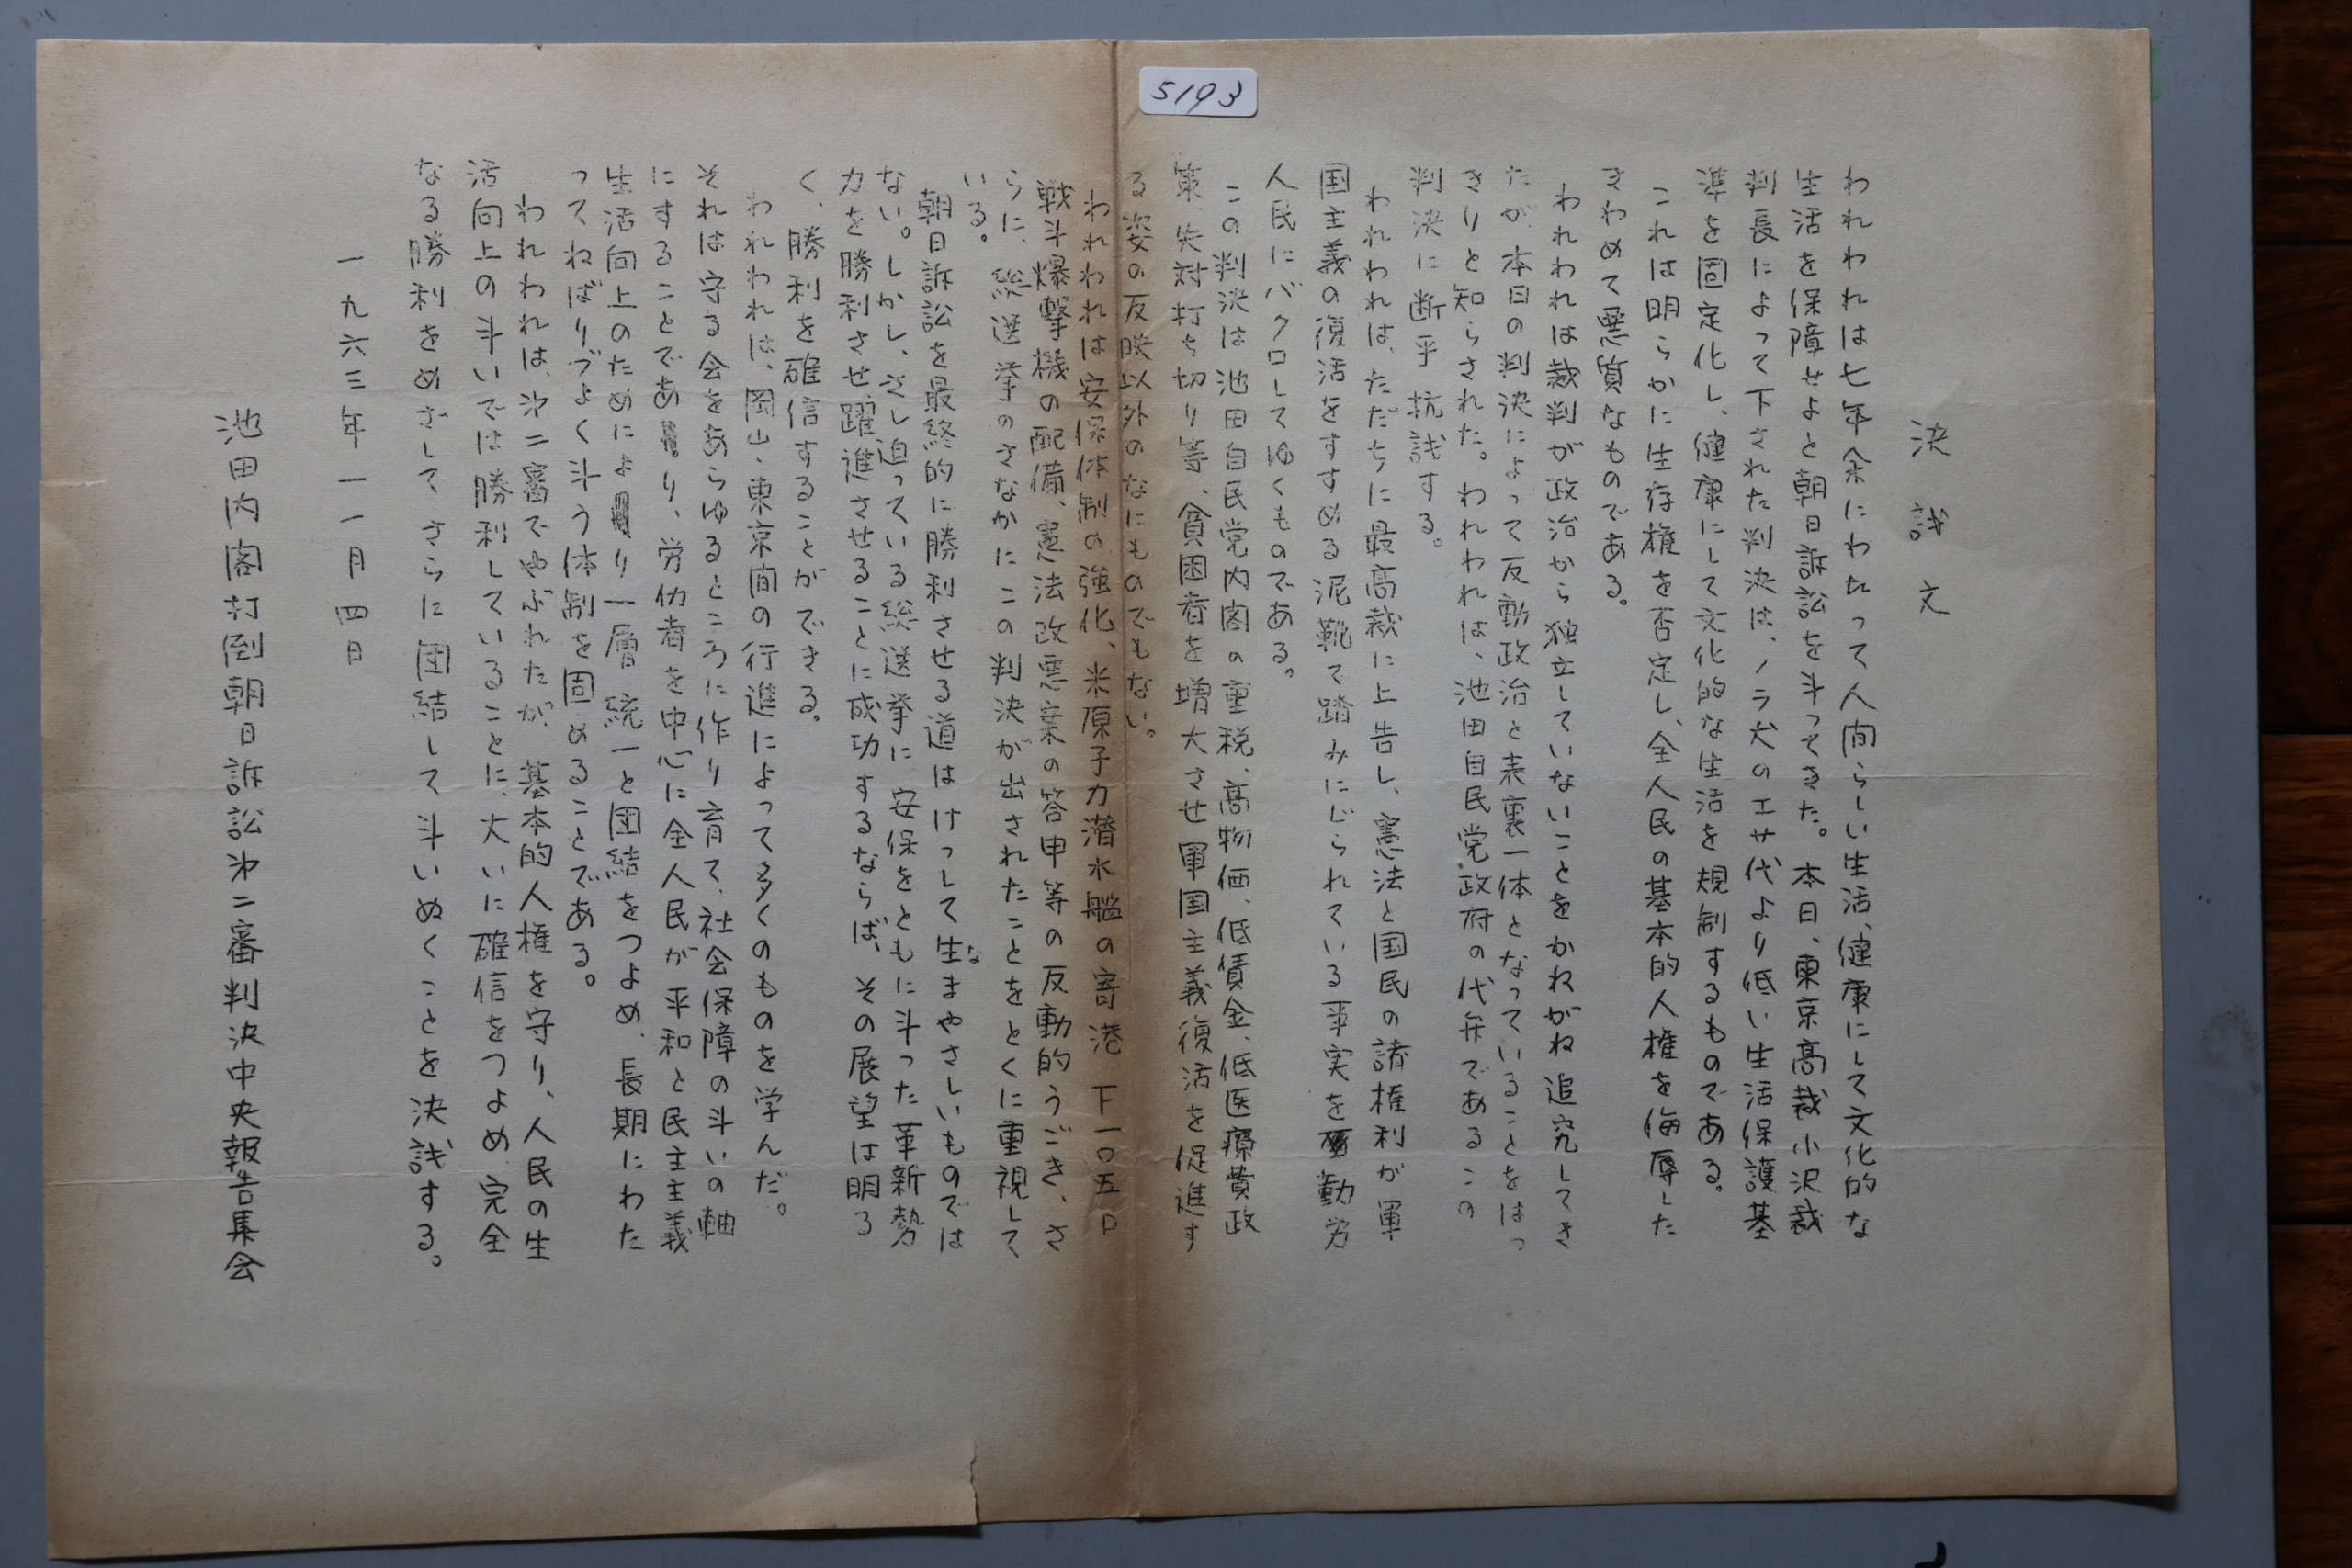 5193
決議文
われわれは七年余にわたって人間らしい生活、健康にして文化的な
生活を保障せよと朝日訴訟を斗ってきた。本日、東京高裁小沢裁
判長によって下された判決は、ノラ犬のエサ代より低い生活保護基
準を固定化し、健康にして文化的な生活を規制するものである。
これは明らかに生存権を否定し、全人民の基本的人権を侮辱した
きわめて悪質なものである。
われわれは裁判が政治から独立していないことをかねがね追究してき
たが、本日の判決によって反動政治と表裏一体となっていることをはっ
きりと知らされた。われわれは、池田自民党政府の代弁であるこの
判決に断乎抗議する。
われわれは、ただちに最高裁に上告し、憲法と国民の諸権利が軍
国主義の復活をすすめる泥靴で踏みにじられている事実を勤労
人民にバクロしてゆくものである。
この判決は池田自民党内閣の重税、高物価、低賃金、低医療費政
策、失対打ち切り等、貧困者を増大させ軍国主義復活を促進す
る姿の反映以外のなにものでもない。
われわれは安保体制の強化、米原子力潜水艦の寄港、F一〇五D
戦斗爆撃機の配備、憲法改悪案の答申等の反動的うごき、さ
らに、総選挙のさなかにこの判決が出されたことをとくに重視して
いる。
朝日訴訟を最終的に勝利させる道はけっして生まやさしいものでは
ない。しかし、さし迫っている総選挙に安保をともに斗った革新勢
力を勝利させ、躍進させることに成功するならば、その展望は明る
く、勝利を確信することができる。
われわれは、岡山、東京間の行進によって多くのものを学んだ。
それは守る会をあらゆるところに作り育て、社会保障の斗いの軸
にすることであり、労仂者を中心に全人民が平和と民主主義
生活向上のためにより一層統一と団結をつよめ、長期にわた
ってねばりづよく斗う体制を固めることである。
われわれは、㐧二審でやぶれたが、基本的人権を守り、人民の生
活向上の斗いでは勝利していることに、大いに確信をつよめ、完全
なる勝利をめざして、さらに団結して斗いぬくことを決議する。
一九六三年一一月四日
池田内閣打倒朝日訴訟㐧二審判決中央報告集会